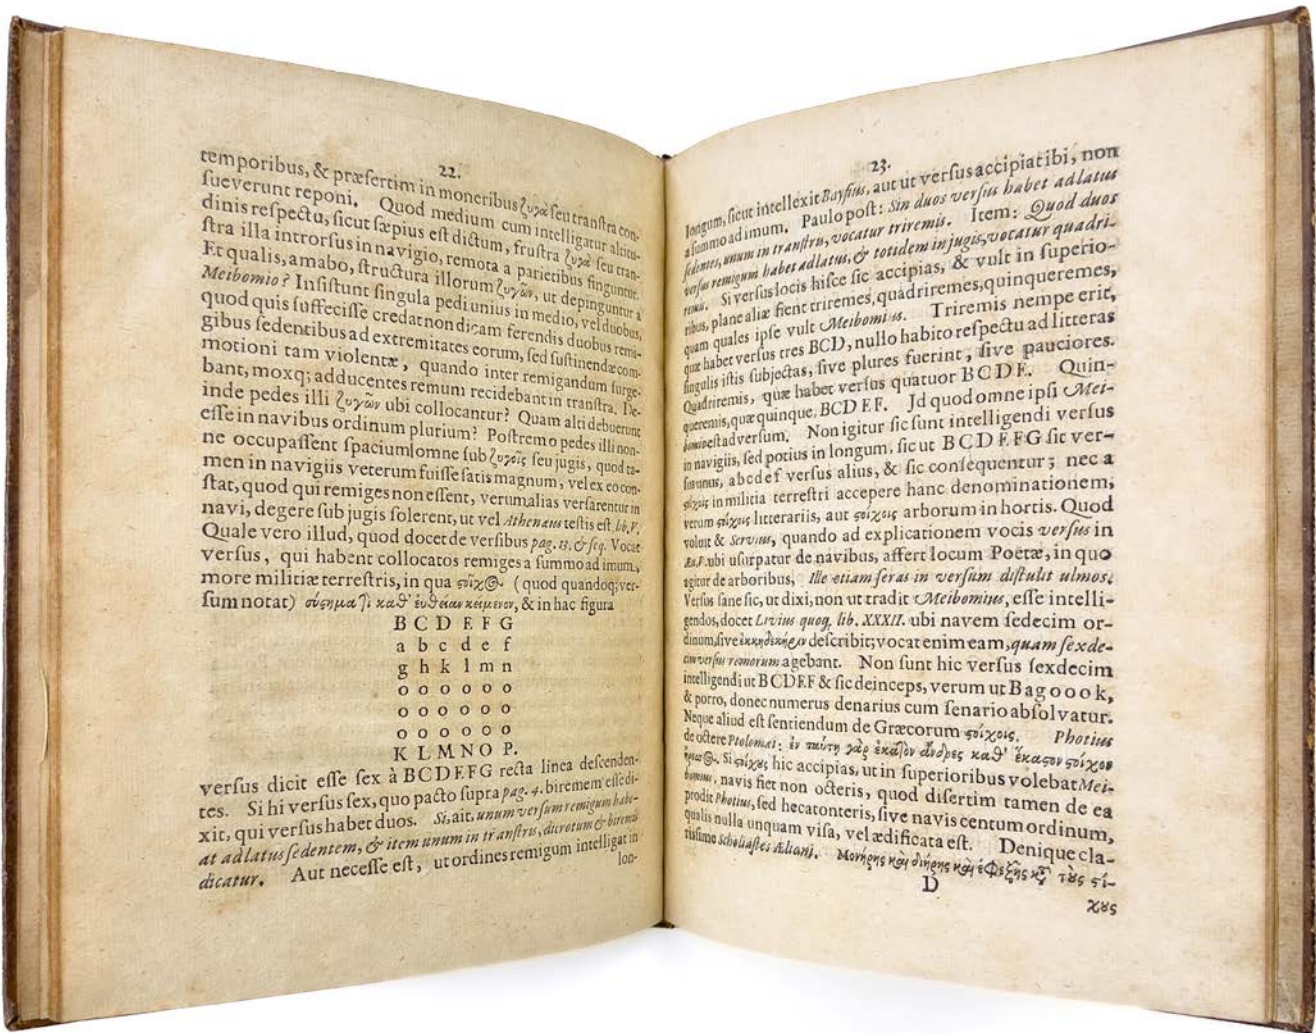 22.
temporibus, & præſertim in moneribus ζυγὰ ſeu tranſtra con-
ſueverunt reponi. Quod medium cum intelligatur altitu-
dinis reſpectu, ſicut ſæpius eſt dictum, fruſtra ζυγὰ ſeu tran-
ſtra illa introrſus in navigio, remota a parietibus finguntur.
Et qualis, amabo, ſtructura illorum ζυγῶν, ut depinguntur a
Meibomio? Inſiſtunt ſingula pedi unius in medio, vel duobus,
quod quis ſuffeciſſe credat non dicam ferendis duobus remi-
gibus ſedentibus ad extremitates eorum, ſed ſuſtinendæ com-
motioni tam violentæ, quando inter remigandum ſurge-
bant, moxq; adducentes remum recidebant in tranſtra. De-
inde pedes illi ζυγῶν ubi collocantur? Quam alti debuerunt
eſſe in navibus ordinum plurium? Poſtremo pedes illi non-
ne occupaſſent ſpacium omne ſub ζυγοῖς ſeu jugis, quod ta-
men in navigiis veterum fuiſſe ſatis magnum, vel ex eo con-
ſtat, quod qui remiges non eſſent, verum alias verſarentur in
navi, degere ſub jugis ſolerent, ut vel Athenæus teſtis eſt lib. V.
Quale vero illud, quod docet de verſibus pag. 13. & ſeq. Vocat
verſus, qui habent collocatos remiges a ſummo ad imum,
more militiæ terreſtris, in qua ςοῖχ@. (quod quandoq; ver-
ſum notat) σύςημα τὶ καθ' ἐυθεῖαν κείμενον, & in hac figura
B C D E F G
a b c d e f
g h k l m n
o o o o o o
o o o o o o
o o o o o o
K L M N O P.
verſus dicit eſſe ſex à BCDEFG recta linea deſcenden-
tes. Si hi verſus ſex, quo pacto ſupra pag. 4. biremem eſſe di-
xit, qui verſus habet duos. Si, ait, unum verſum remigum habe-
at ad latus ſedentem, & item unum in tranſtris, dicrotum & biremis
dicatur. Aut neceſſe eſt, ut ordines remigum intelligat in
lon-
23.
longum, ſicut intellexit Bayfius, aut ut verſus accipiat ibi, non
a ſummo ad imum. Paulo poſt: Sin duos verſus habet ad latus
ſedentes, unum in tranſtris, vocatur triremis. Item: Quod duos
verſus remigum habet ad latus, & totidem in jugis, vocatur quadri-
remis. Si verſus locis hiſce ſic accipias, & vult in ſuperio-
ribus, plane aliæ fient triremes, quadriremes, quinqueremes,
quam quales ipſe vult Meibomius. Triremis nempe erit,
quæ habet verſus tres BCD, nullo habito reſpectu ad litteras
ſingulis iſtis ſubjectas, ſive plures fuerint, ſive pauciores.
Quadriremis, quæ habet verſus quatuor BCDE. Quin-
queremis, quæ quinque, BCDEF. Jd quod omne ipſi Mei-
bomio eſt adverſum. Non igitur ſic ſunt intelligendi verſus
in navigiis, ſed potius in longum, ſic ut BCDEFG ſit ver-
ſus unus, abcdef verſus alius, & ſic conſequentur; nec a
ςοίχοις in militia terreſtri accepere hanc denominationem,
verum ςοίχοις litterariis, aut ςοίχοις arborum in hortis. Quod
voluit & Servius, quando ad explicationem vocis verſus in
Æn. V. ubi uſurpatur de navibus, affert locum Poetæ, in quo
agitur de arboribus, Ille etiam ſeras in verſum diſtulit ulmos.
Verſus ſane ſic, ut dixi, non ut tradit Meibomius, eſſe intelli-
gendos, docet Livius quoq. lib. XXXII. ubi navem ſedecim or-
dinum, ſive ἑκκηδεκήρην deſcribit; vocat enim eam, quam ſexde-
cim verſus remorum agebant. Non ſunt hic verſus ſexdecim
intelligendi ut BCDEF & ſic deinceps, verum ut Bagoook,
& porro, donec numerus denarius cum ſenario abſolvatur.
Neque aliud eſt ſentiendum de Græcorum ςοίχοις. Photius
de octere Ptolomæi: ἐν ταύτῃ γὰρ ἑκατὸν ἄνδρες καθ' ἕκαςον ςοῖχον
Si ςοίχους hic accipias, ut in ſuperioribus volebat Mei-
bomius, navis fiet non octeris, quod diſertim tamen de ea
prodit Photius, ſed hecatonteris, ſive navis centum ordinum,
qualis nulla unquam viſa, vel ædificata eſt. Denique cla-
riſſime Scholiaſtes Æliani. Μονήρης καὶ διήρης καὶ ἐφεξῆς κτ̃ τὰς ςί-
D
χȣς